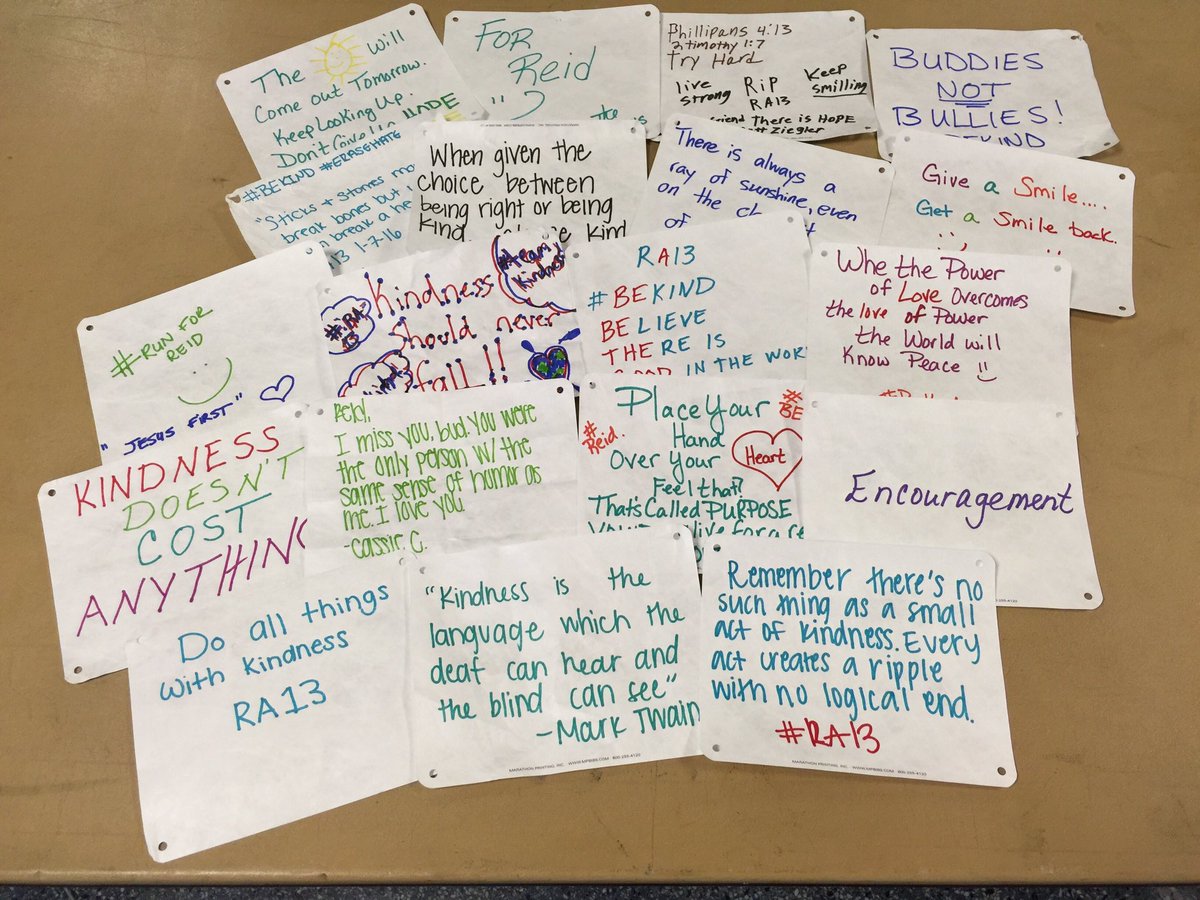 The will
Come out Tomorrow.
Keep Looking Up.
Don't Give Up
FOR
Reid
the
is
Phillipans 4:13
2 timothy 1:7
Try Hard
live
strong
RiP
RA13
Keep
smilling
friend There is HOPE
Ziegler
BUDDIES
NOT
BULLIES!
#BEKIND #ERASEHATE
"Sticks + Stones
break bones but
break a
1-7-16
When given the
choice between
being right or being
kind,
kind
There is always a
ray of sunshine, even
on the
of
Give a Smile....
Get a Smile back.
#RUN FOR
REID
"JESUS FIRST"
#RA
13
#team
kindness
Kindness
Should never
fall!!
RA13
#BEKIND
BELIEVE
THERE IS
GOOD IN THE
Whe the Power
of Love Overcomes
the love of Power
the World will
Know Peace
KINDNESS
DOESN'T
COST
ANYTHING
Reid,
I miss you, bud. You were
the only person w/ the
same sense of humor as
me. I love you
#Reid.
#BE
Place Your
Hand
Over Your
Heart
Feel that?
That's Called PURPOSE
Encouragement
Do all things
with kindness
RA13
"Kindness is the
language which the
deaf can hear and
the blind can see"
-Mark Twain
MARATHON PRINTING, INC. WWW.MPIBIBS.COM 800-255-4120
Remember there's no
such thing as a small
act of kindness. Every
act creates a ripple
with no logical end.
#RA13
MARATHON PRINTING, INC. WWW.MPIBIBS.COM 800-255-4120